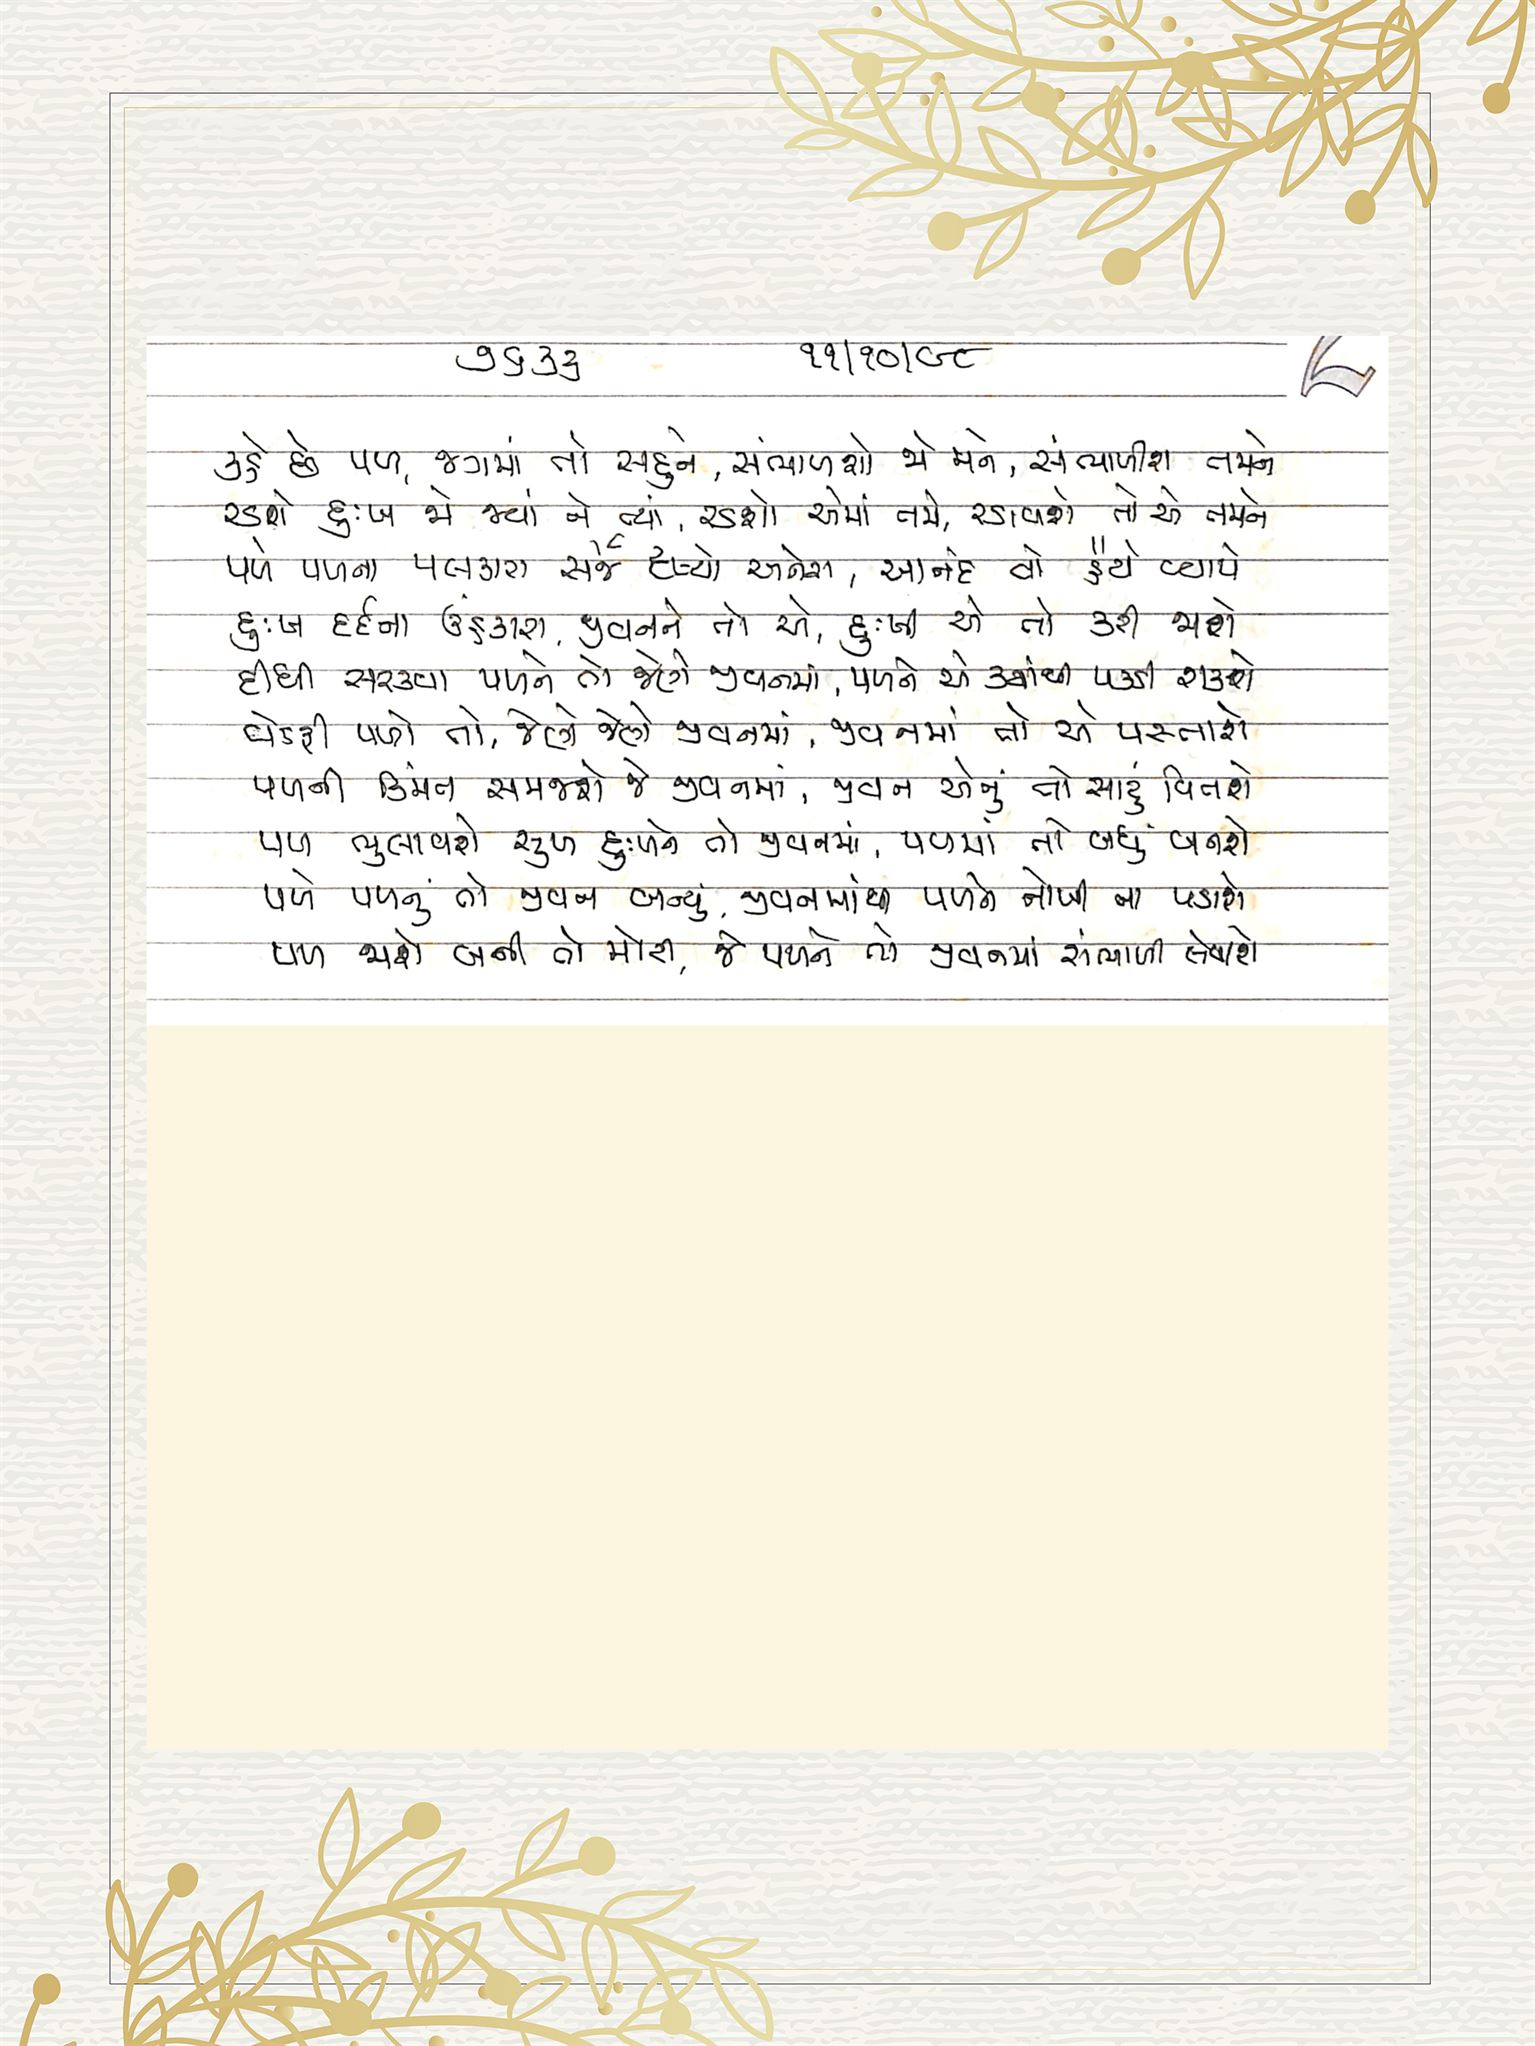 ૭૬૩૩ ૧૧/૧૦/૯૮
કહે છે પળ, જગમાં તો સહુને, સંભાળશો જો મને, સંભાળીશ તમને
રડશે દુઃખ જો જ્યાં ને ત્યાં, રડશો એમાં તમે, રડાવશે તો એ તમને
પળે પળના પલકારા સર્જે દૃશ્યો અનેરા, આનંદ તો હૈયે વ્યાપે
દુઃખ દર્દના ઉંહકારા, જીવનને તો એ, દુઃખી એ તો કરી જાશે
દીધી સરકવા પળને તો જેણે જીવનમાં, પળને એ ક્યાંથી પકડી શકશે
વેડફી પળો તો, જેણે જેણે જીવનમાં, જીવનમાં તો એ પસ્તાશે
પળની કિંમત સમજશે જે જીવનમાં, જીવન એનું તો સારું વિતશે
પળ ભુલાવશે સુખ દુઃખને તો જીવનમાં, પળમાં તો બધું બનશે
પળે પળનું તો જીવન બન્યું, જીવનમાંથી પળને નોખી ના પડાશે
પળ જાશે બની તો મોરી, જે પળને તો જીવનમાં સંભાળી લેવાશે